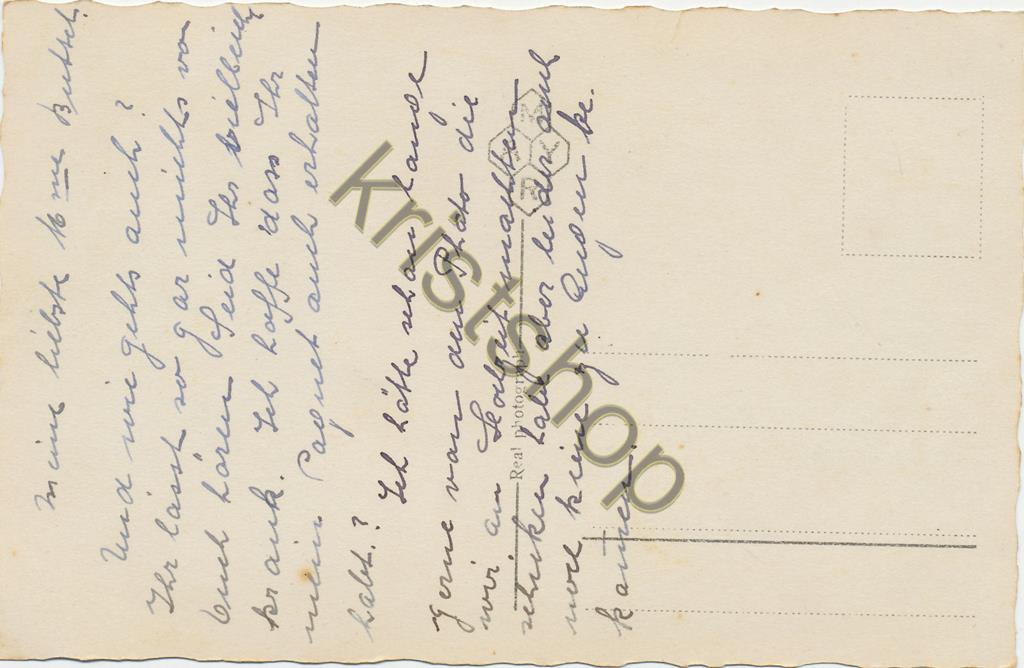 Meine liebste Mme Buttel.
Und wie gehts auch?
Ihr lässt so gar nichts von
Euch hören. Seid Ihr vielleicht
krank. Ich hoffe dass Ihr
mein Paquet auch erhalten
habt? Ich hätte schon lange
gerne von den Photo die
wir am Hochzeit machten
schicken habe aber leider auch
noch keine zu
kamen.
Real photograph
kristshop